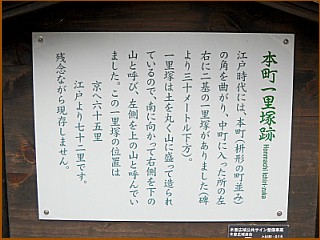 本町一里塚跡
Honmachi Ichiri-zuka
江戸時代には、本町(桝形の町並み)
の角を曲がり、中町に入った所の左
右に二基の一里塚がありました(碑
より三十メートル下方)。
一里塚は土を丸く山に盛って造られ
ているので、南に向かって右側を下の
山と呼び、左側を上の山と呼んでい
ました。この一里塚の位置は
京へ六十五里
江戸より七十二里です。
残念ながら現存しません。
木曽広域公共サイン整備事業
木曽広域連合